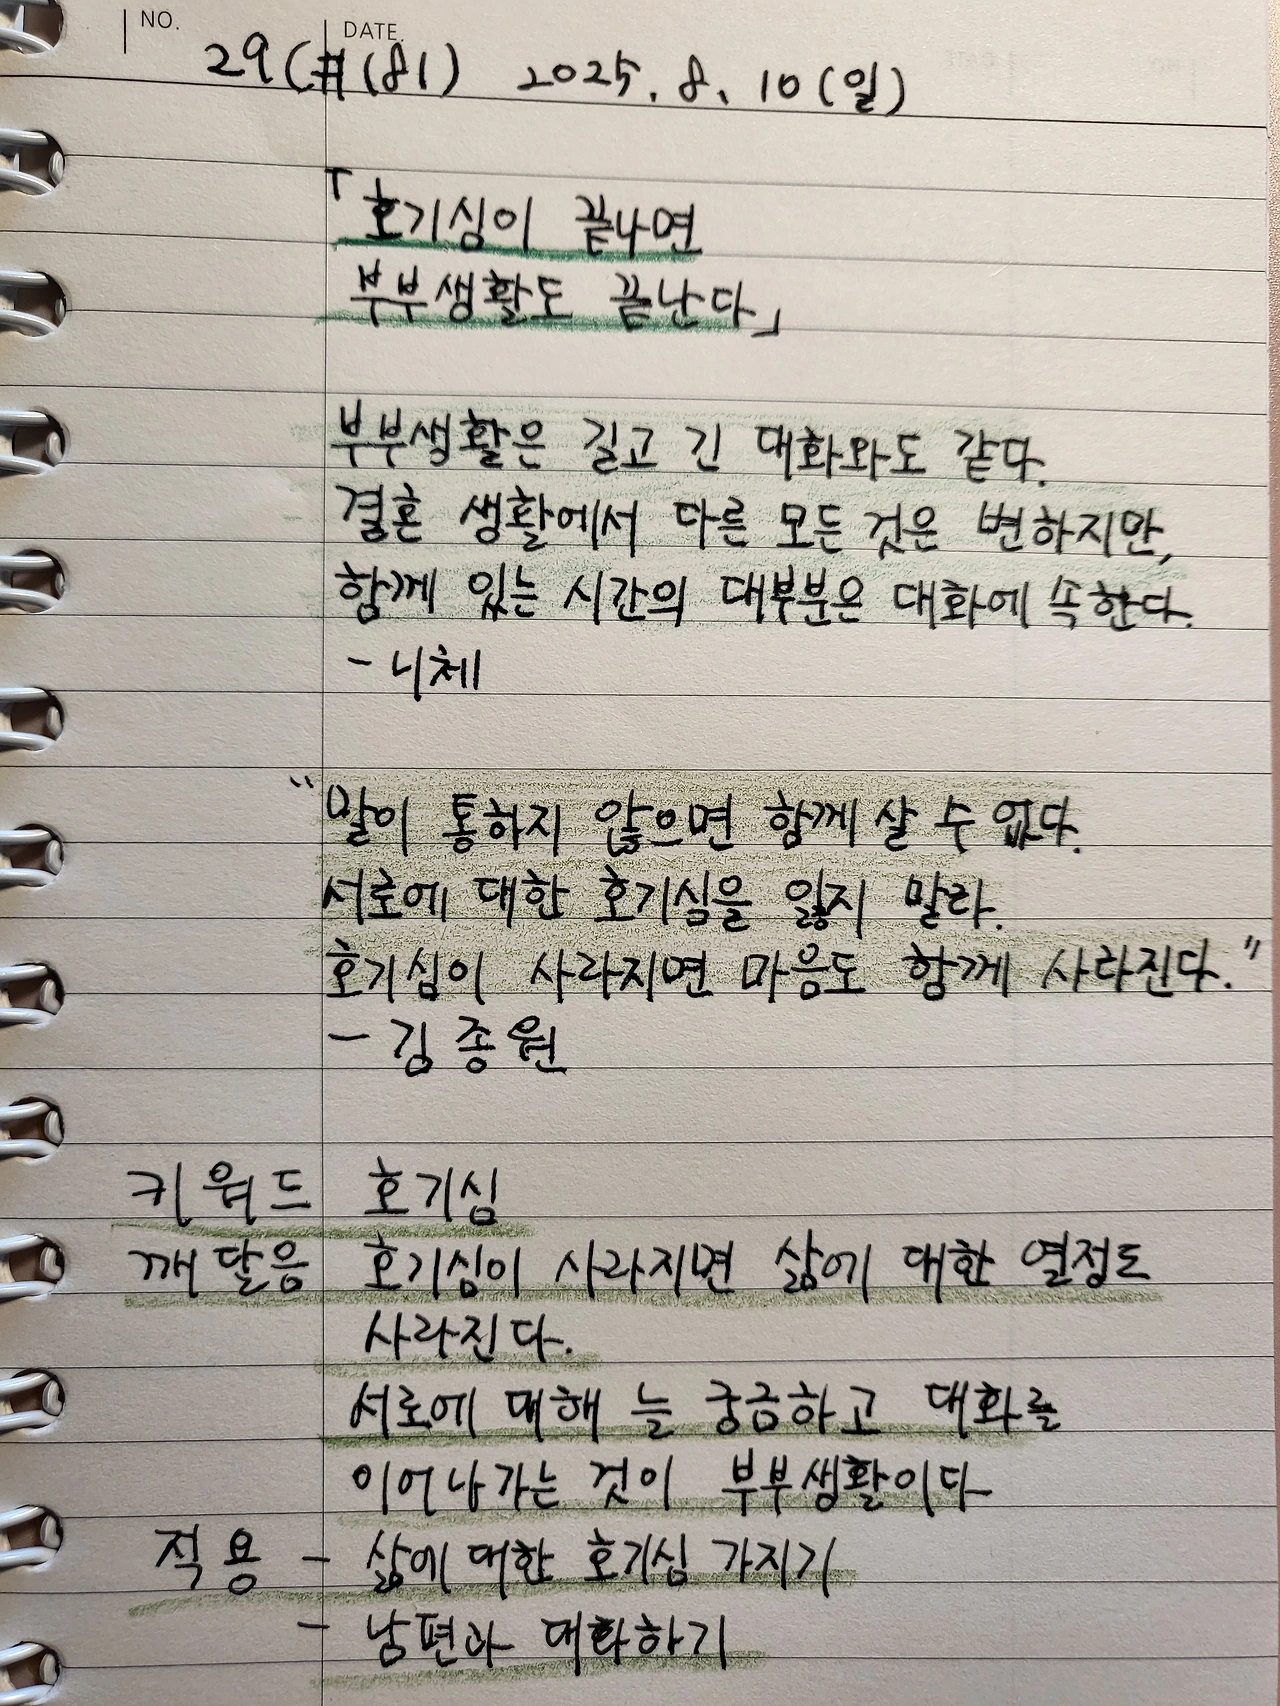 NO.
DATE.
29(#181) 2025. 8. 10(일)
「호기심이 끝나면
부부생활도 끝난다」
부부생활은 길고 긴 대화와도 같다.
결혼 생활에서 다른 모든 것은 변하지만,
함께 있는 시간의 대부분은 대화에 속한다.
- 니체
"말이 통하지 않으면 함께 살 수 없다.
서로에 대한 호기심을 잃지 말라.
호기심이 사라지면 마음도 함께 사라진다."
- 김종원
키워드 호기심
깨달음 호기심이 사라지면 삶에 대한 열정도
사라진다.
서로에 대해 늘 궁금하고 대화를
이어나가는 것이 부부생활이다
적용 - 삶에 대한 호기심 가지기
- 남편과 대화하기